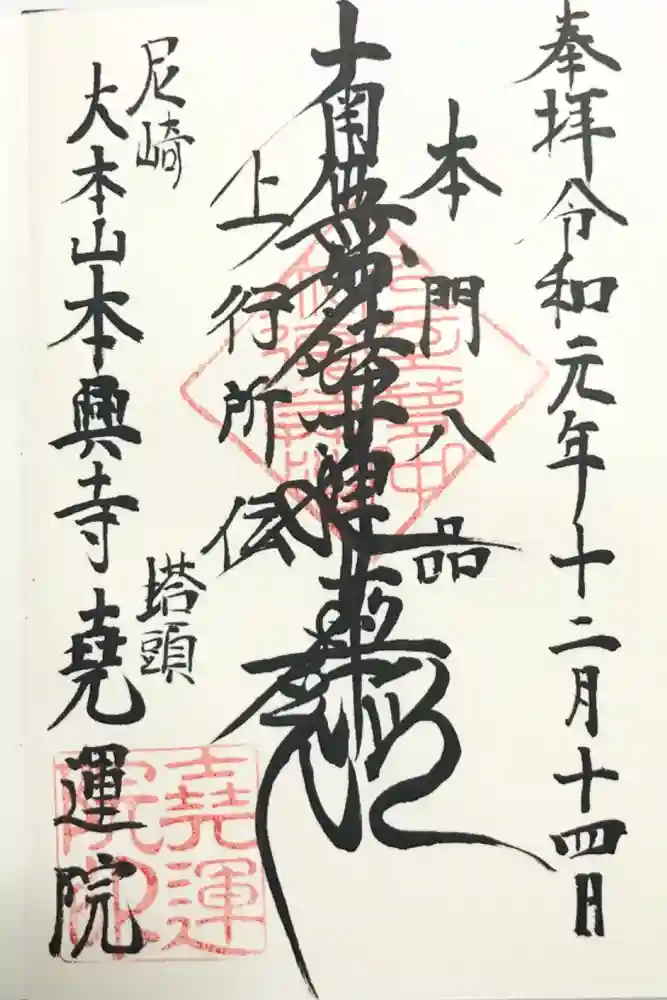 奉拝 令和元年十二月十四日
本門八品
上行所伝
南無妙法蓮華経
尼崎
大本山本興寺
塔頭
堯運院
堯運
院印